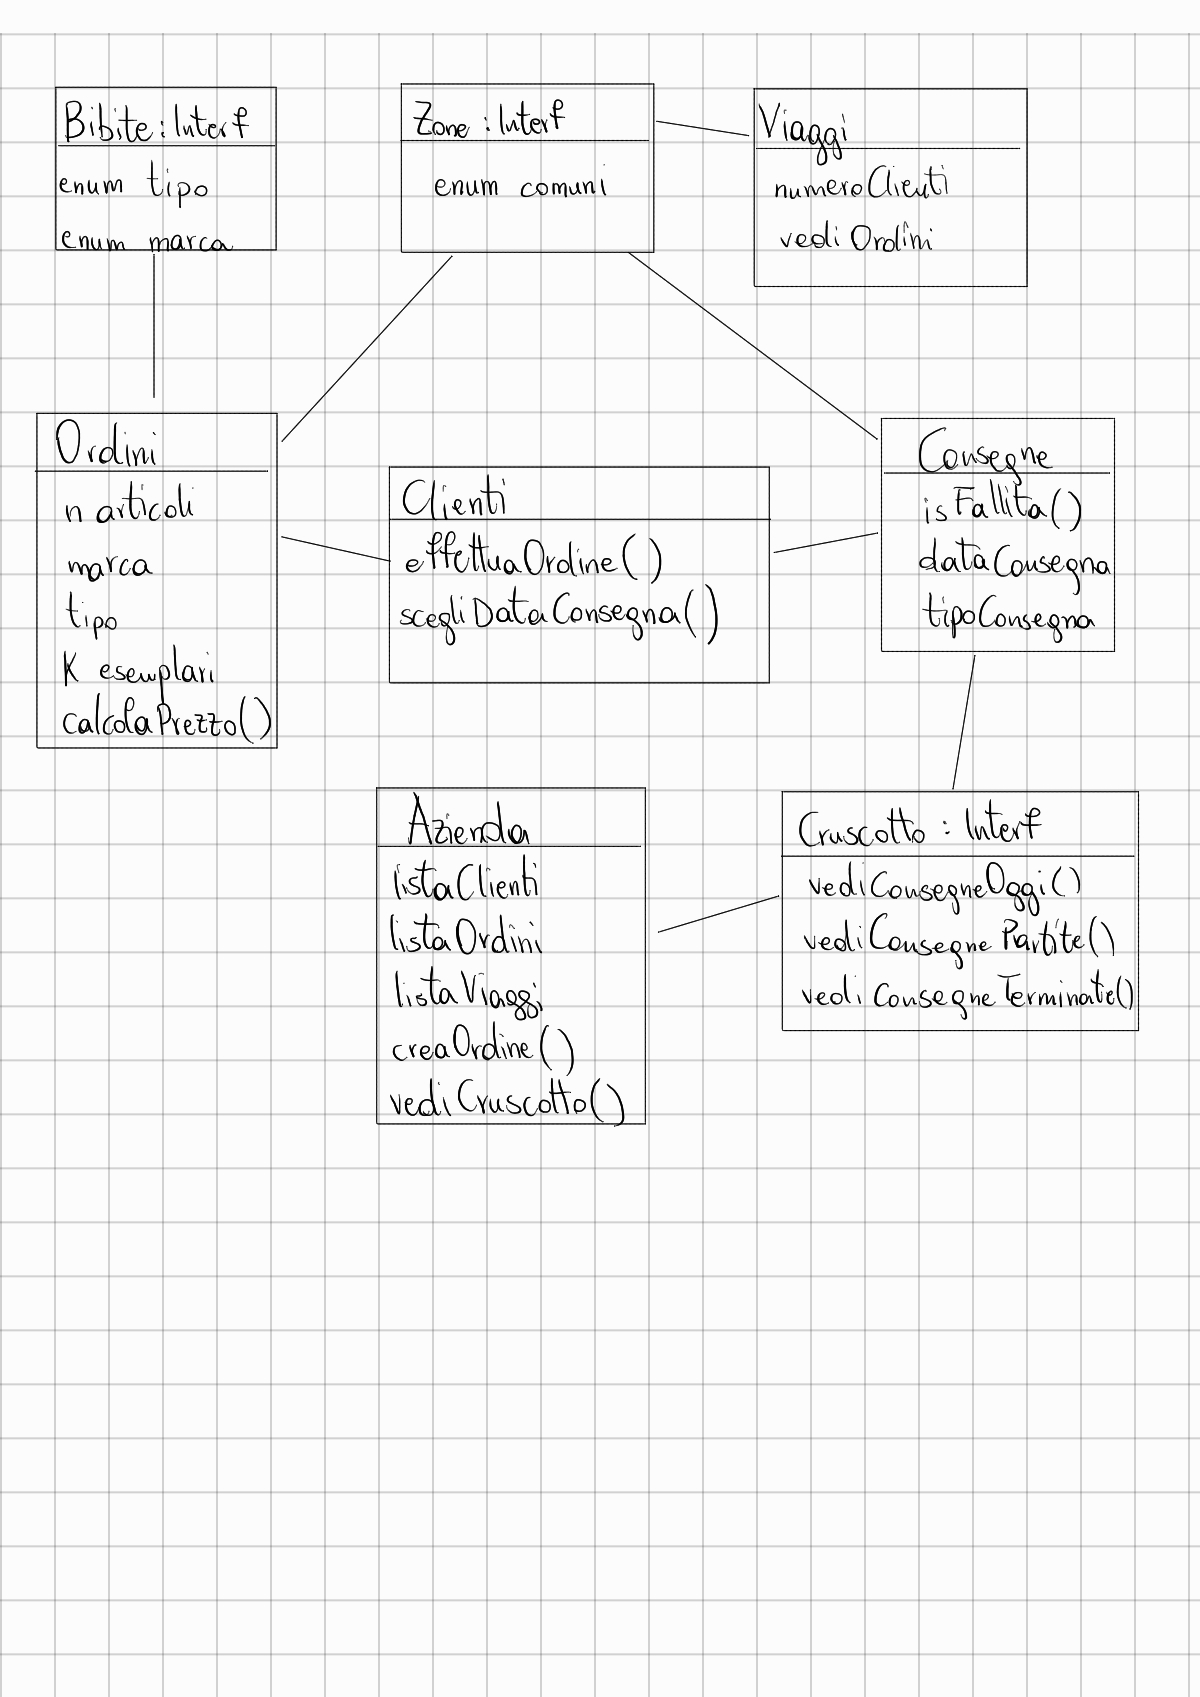 Bibite : Interf
enum tipo
enum marca
Zone : Interf
enum comuni
Viaggi
numeroClienti
vediOrdini
Ordini
n articoli
marca
tipo
K esemplari
calcolaPrezzo()
Clienti
effettuaOrdine()
scegliDataConsegna()
Consegne
isFallita()
dataConsegna
tipoConsegna
Azienda
listaClienti
listaOrdini
listaViaggi
creaOrdine()
vediCruscotto()
Cruscotto : Interf
vediConsegneOggi()
vediConsegnePartite()
vediConsegneTerminate()